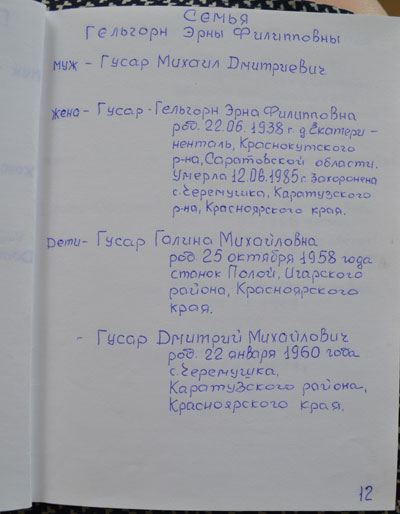 Семья
Гельгорн Эрны Филипповны
муж - Гусар Михаил Дмитриевич
жена - Гусар - Гельгорн Эрна Филипповна
род. 22.06. 1938 г. д Екатери -
ненталь, Краснокутского
р-на, Саратовской области.
Умерла 12.06.1985 г. Захоронена
с. Черемушка, Каратузского
р-на, Красноярского края.
Дети - Гусар Галина Михайловна
род. 25 октября 1958 года
станок Полой, Игарского
района, Красноярского
края.
- Гусар Дмитрий Михайлович
род. 22 января 1960 года
с. Черемушка,
Каратузского района,
Красноярского края.
12